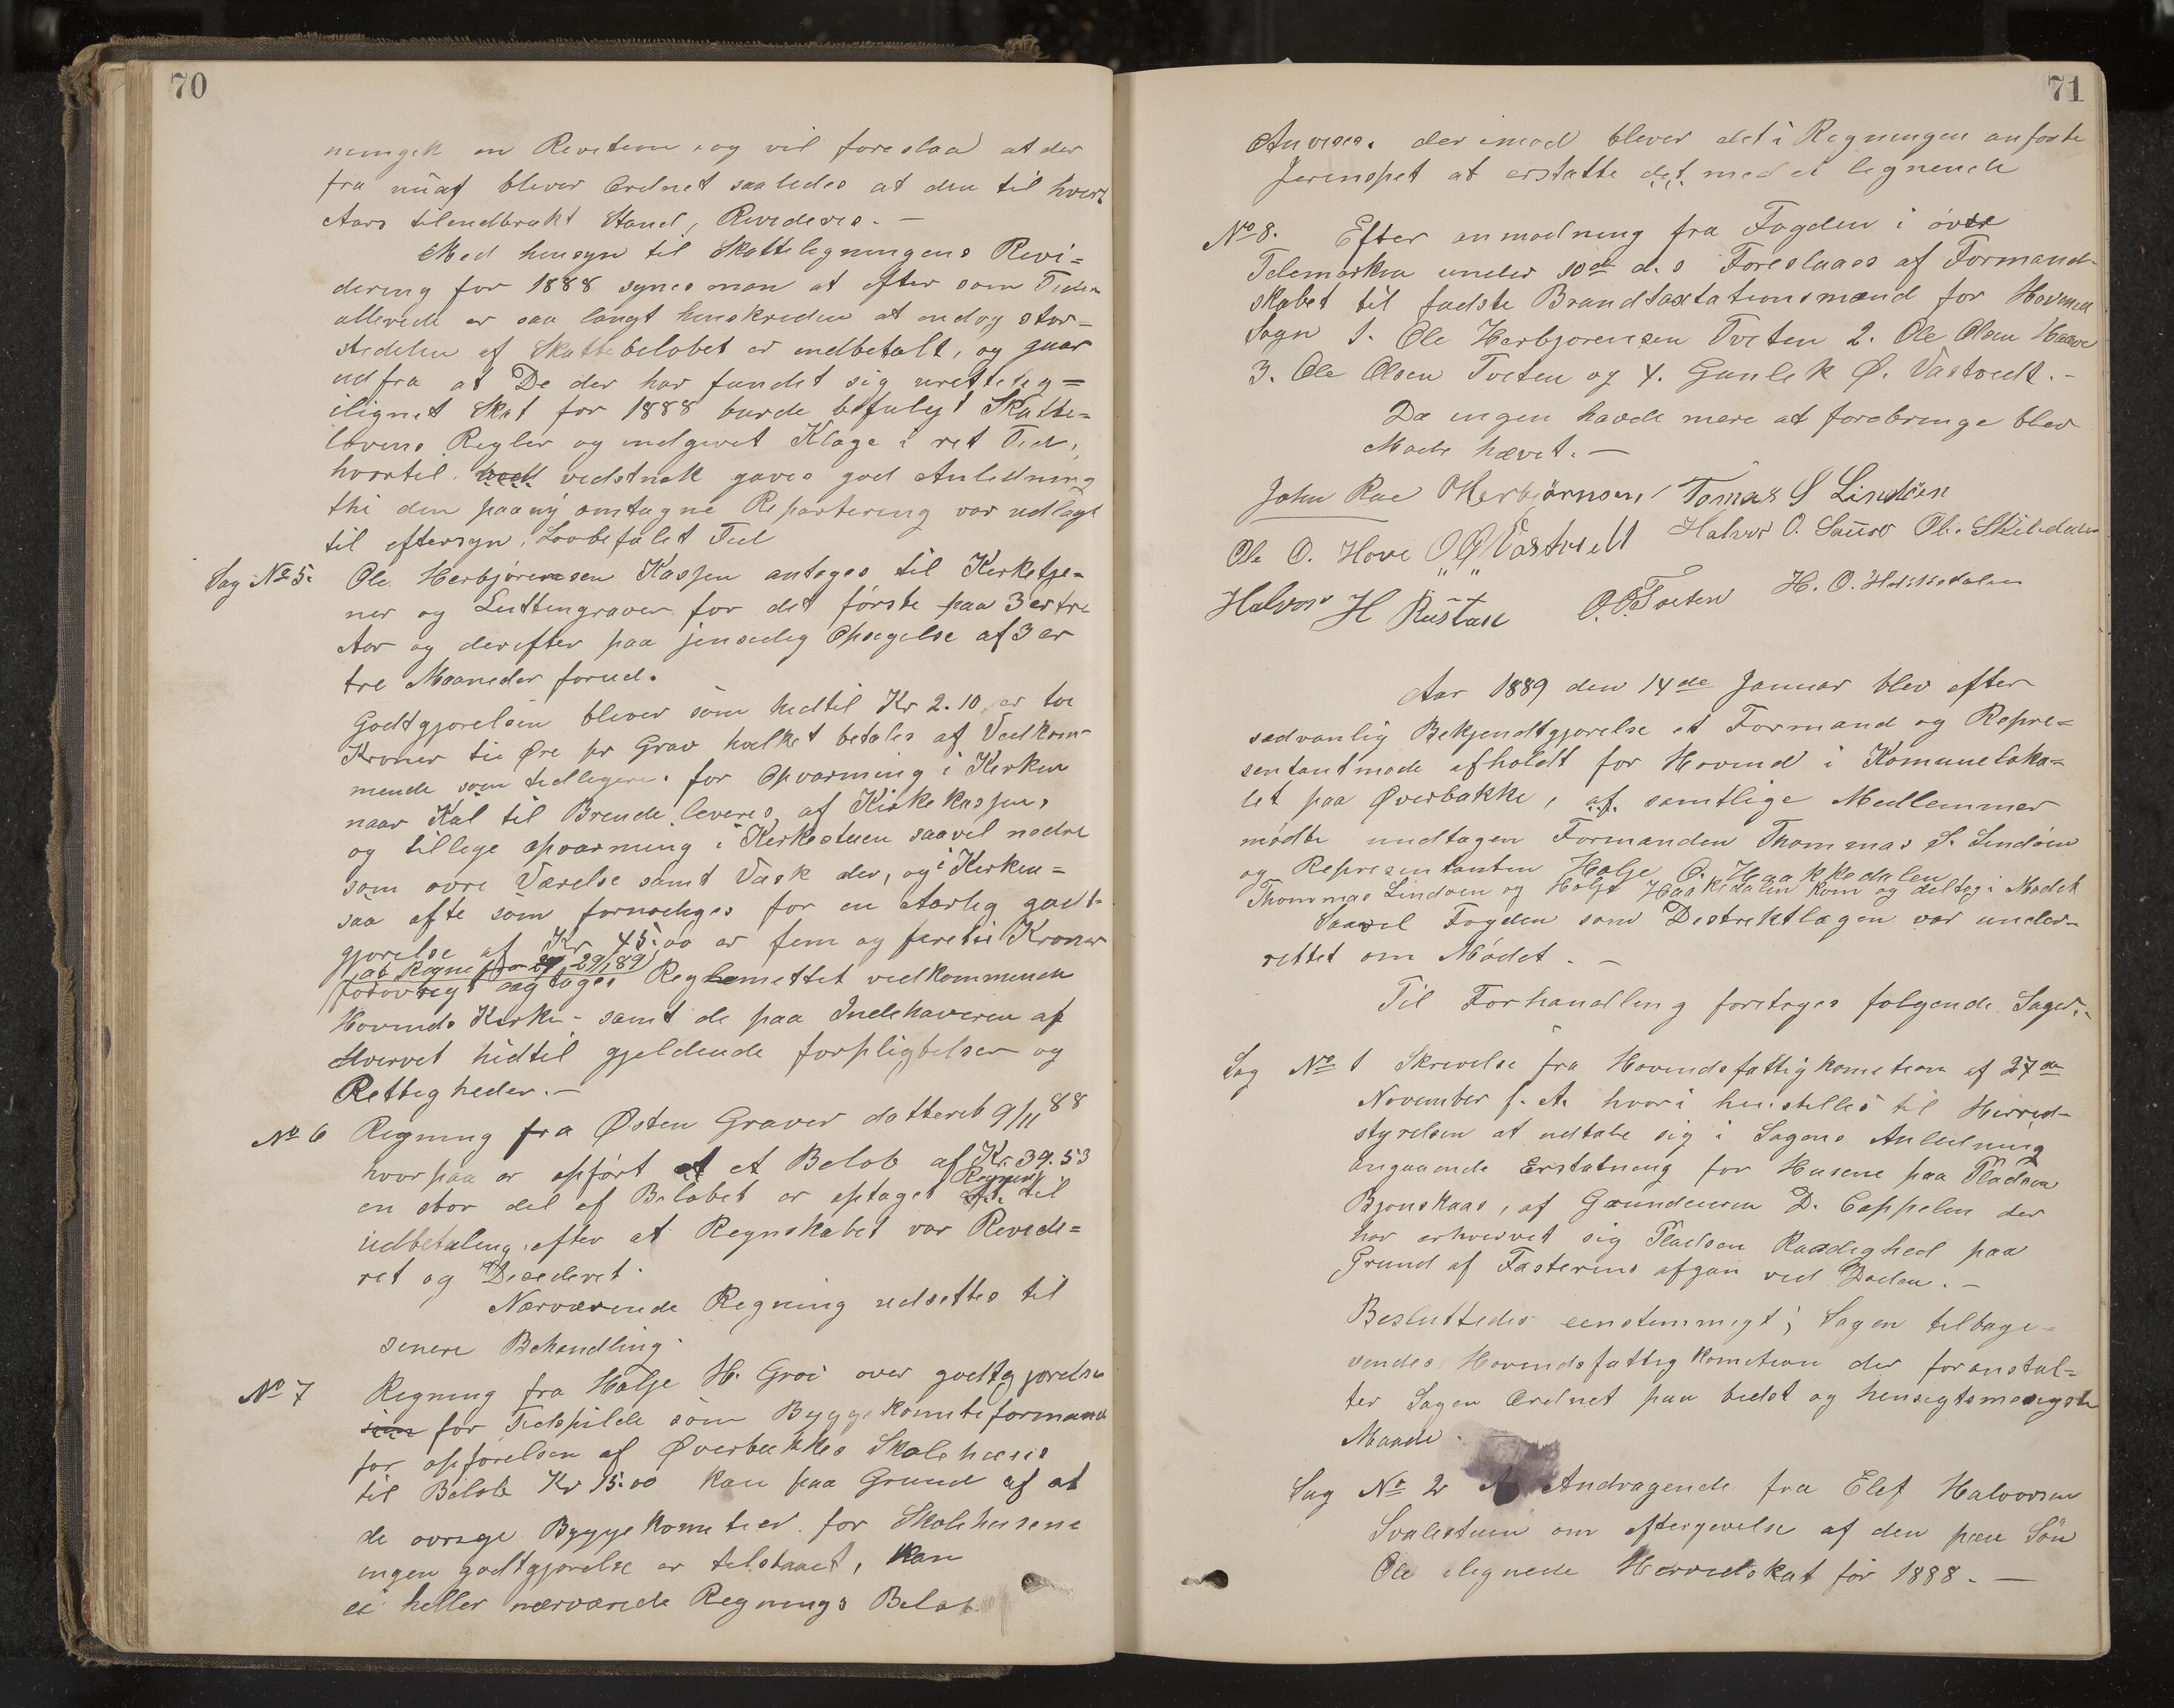 70
en Revition, og vil foreslaa at der
fra nu af bliver Ordnet saaledes at den til hvert
Aars tilendbrakt Stand, Revideres. —
Med hensyn til Skatteligningens Revi=
dering for 1888 synes man at efter som Tiden
allerede er saa langt henskreden at endog stør=
stedelen af Skattebeløbet er indbetalt, og gaar
ud fra at De der har fundet sig urettelig=
ilignet Skat for 1888 burde befulgt Skatte=
lovens Regler og indgivet Klage i ret Tid,
hvortil vedstnok gaves god Anledning
thi den paany omtagne Repartering var udlagt
til eftersyn, Lovbefalet Tid
Sag No 5. Ole Herbjørensen Kassen antages til Kerketje=
ner og for det første paa 3 er tre
Aar og derefter paa jensedig Opsegelse af 3 er
tre Maaneder forud.
Godtgjørelsen bliver som hidtil Kr 2.10 er to
Kroner ti Øre pr Grav hvilket betales af Vedkom=
mende som tidligere. for Opvarming i Kerken
naar Kul til Brende leveres af Kirkekassen,
og tillege opvarming i Kerkestuen saavel nedre
som øvre Værelse samt Vask der, og i Kerken=
saa ofte som fornødiges for en Aarlig godt=
gjørelse af Kr 45.00 er fem og føreti Kroner
(at Regne fra 29/1 89)
forøvrigt iagtages Reglemettet vedkommende
Hovinds Kirke - samt de paa Indehaveren af
Hvervet hidtil gjeldende forpligtelser og
Rettigheder. —
No 6 Regning fra Østen Graver datteret 9/11 88
hvorpaa er opført et Beløb af Kr. 39.53
en stor del af Beløbet er optaget Regning til
udbetaling, efter at Regnskabet var Revide=
ret og Decederet.
Nærværende Regning udsettes til
senere Behandling.
No 7 Regning fra Halje H. Groi over godtgjørelse
som for Tidspilde som Byggekomiteformand
for opførelsen af Øverbakkes Skolehuus
til Beløb Kr 15.00 kan paa Grund af at
de øvrige Byggekomiteer for Skolehusene
ingen godtgjørelse er tilstaaet, kan
ei heller nærværende Regnings Beløb
71
Anvises. derimod bliver det i Regningen anførte
at erstatte det med et lignende
No 8. Efter anmodning fra Fogden i øvre
Telemarken under 10de d.s Foreslaaes af Formand=
skabet til fadste Brandtaxtationsmænd for Hovind
Sogn 1. Ole Herbjorensen Tveten 2. Ole Olsen Haave
3. Ole Olsen Tveten og 4. Gunlek Ø. Vastveit. —
Da ingen havde mere at forebringe blev
Møde hævet. —
John Rae O Herbjørnsen, Tomas S Lindöen
Ole O. Hove O Ø Vastveit Halvor O. Sauro Ole. Skiledalen
Halvor H Rustan O. O. Tveten H. O. Hakkedalen
Aar 1889 den 14de Januar blev efter
sedvanlig Bekjendtgjørelse et Formand og Repre=
sentantmøde afholdt for Hovind i Komuneloka=
let paa Øverbakke, af samtlige Medlemmer
mødte undtagen Formanden Thommas S. Lindøen
og Representanten Halje O. Haakkedalen
Thommas Lindøen og Halje Haakkedalen kom og deltog i Mødet
Saavel Fogden som Destriktlægen var under=
rettet om Mødet. —
Til Forhandling foretoges følgende Sager:
Sag No 1 Skrivelse fra Hovindsfattigkometion af 27de
November f. A. hvori henstilles til Herred=
styrelsen at udtale sig i Sagens Anledning
angaaende Erstatning for Husene paa Pladsen
Bjønskaas, af Grundeieren D. Cappelen der
har erhvervet sig Pladsen Raadighed paa
Grund af Fæsterens afgan ved Døden. —
Besluttedes eenstemmigt; Sagen tilbage=
sendes Hovindsfattigkometion der foranstal=
ter Sagen Ordnet paa bedst og hensigtsmesigste
Maade. —
Sag No 2 Andragende fra Elef Halvorsen
Svalestuen om eftergivelse af den paa Søn
Ole ilignede Herredskat for 1888. —